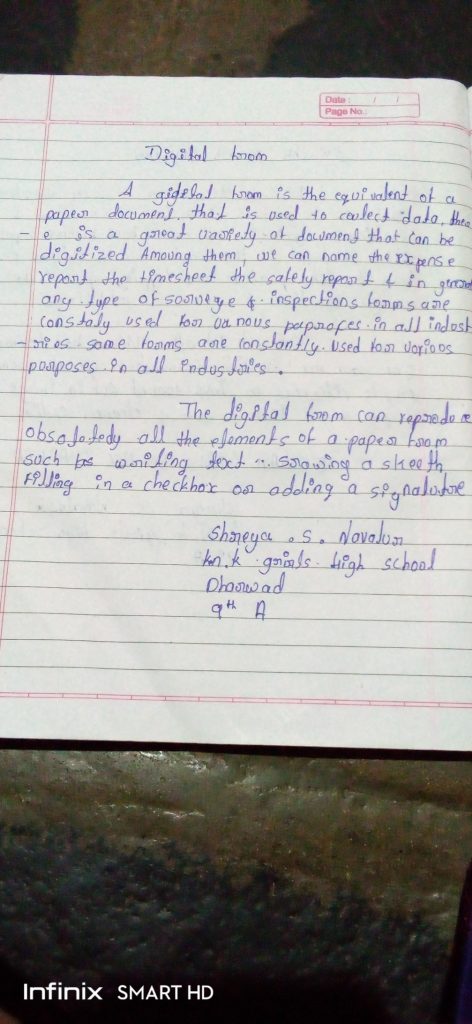 Date : / /
Page No.:
Digital from
A gigital from is the equivalent of a
paper document. that is used to collect data, there
- e is a great variety of document that can be
digitized Amoung them, we can name the expense
report the timesheet the safety report & in general
any type of & inspections forms are
constaly used for various in all indust
- ries some forms are constantly used for various
porposes in all industries.
The digital from can reprodu ce
obsolotedy all the elements of a paper from
such as writing text .. srawing a skecth
Filling in a checkbox or adding a signatutre
Shreya . S. Navalur
kn.k . grirls . High school
Dharwad
9th A
Infinix SMART HD